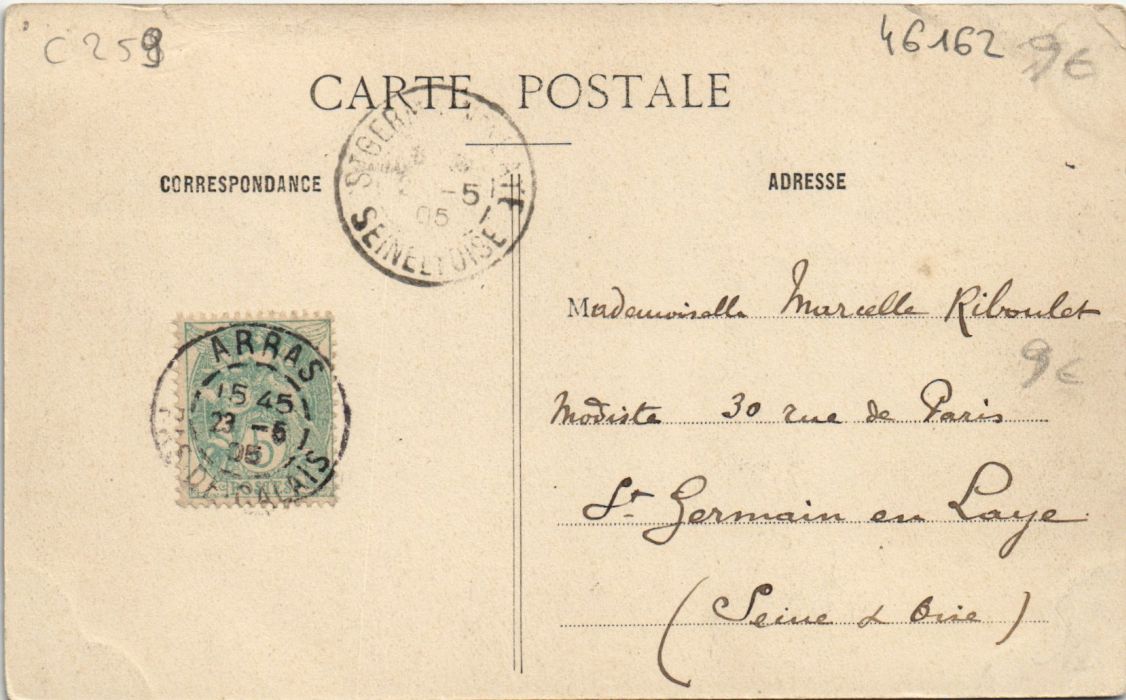 C 259
46162
9€
CARTE POSTALE
CORRESPONDANCE
ADRESSE
ST GERMAIN
-5
05
SEINE ET OISE
Mademoiselle Marcelle Riboulet
9€
Modiste 30 rue de Paris
St Germain en Laye
(Seine & Oise)
ARRAS
15 45
23 -5
05
PAS DE CALAIS
5